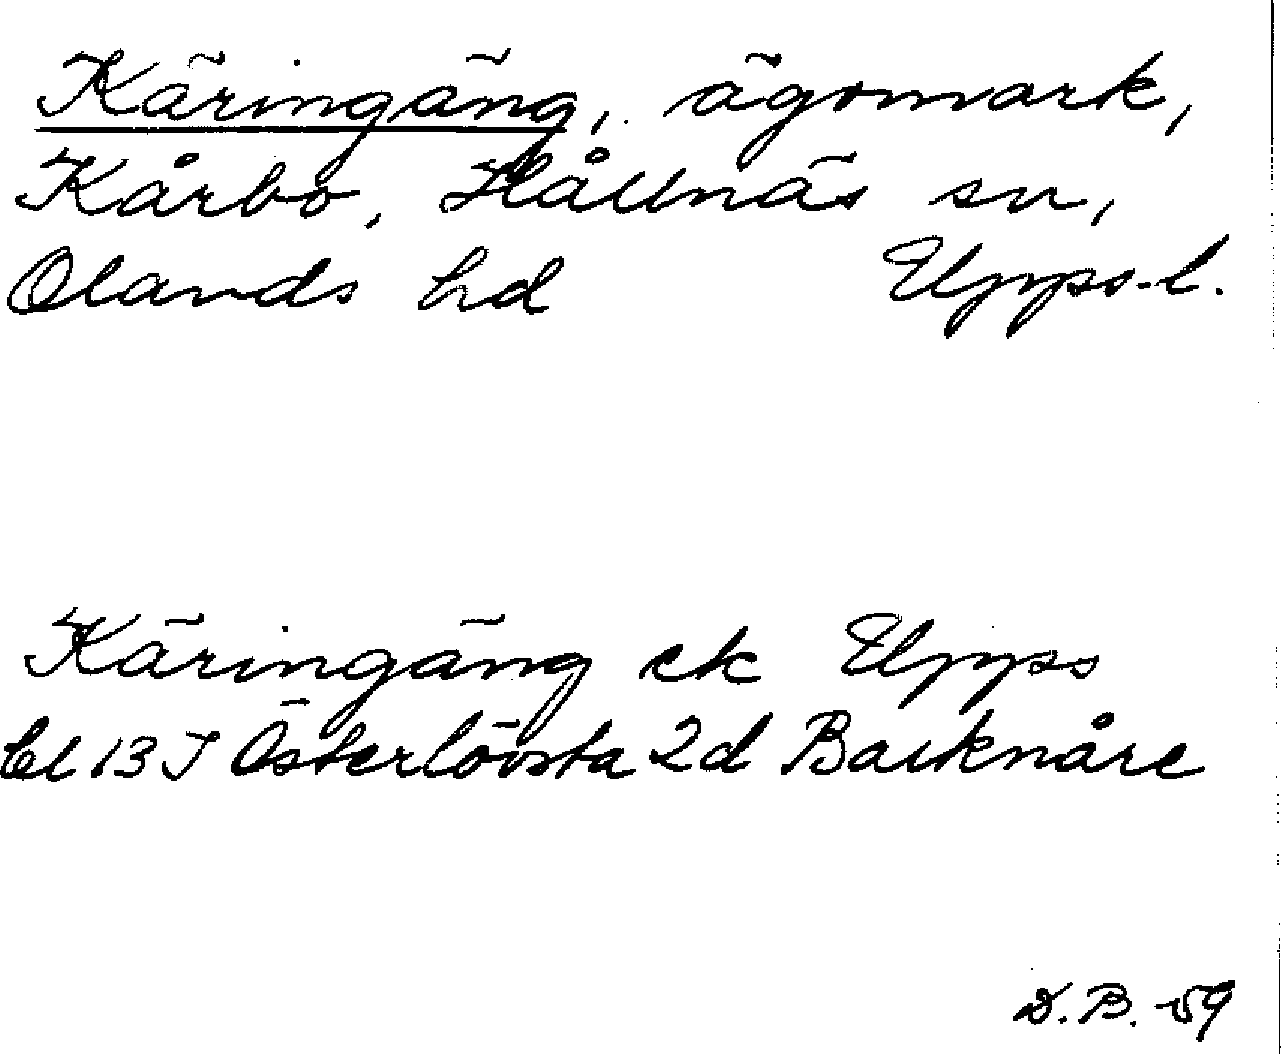 Käringäng, ägomark,
Kårbo, Hållnäs sn,
Olands hd Upps. l.
Käringäng ek Upps
bl 13 J Österlövsta 2d Barknåre
D. B. -59